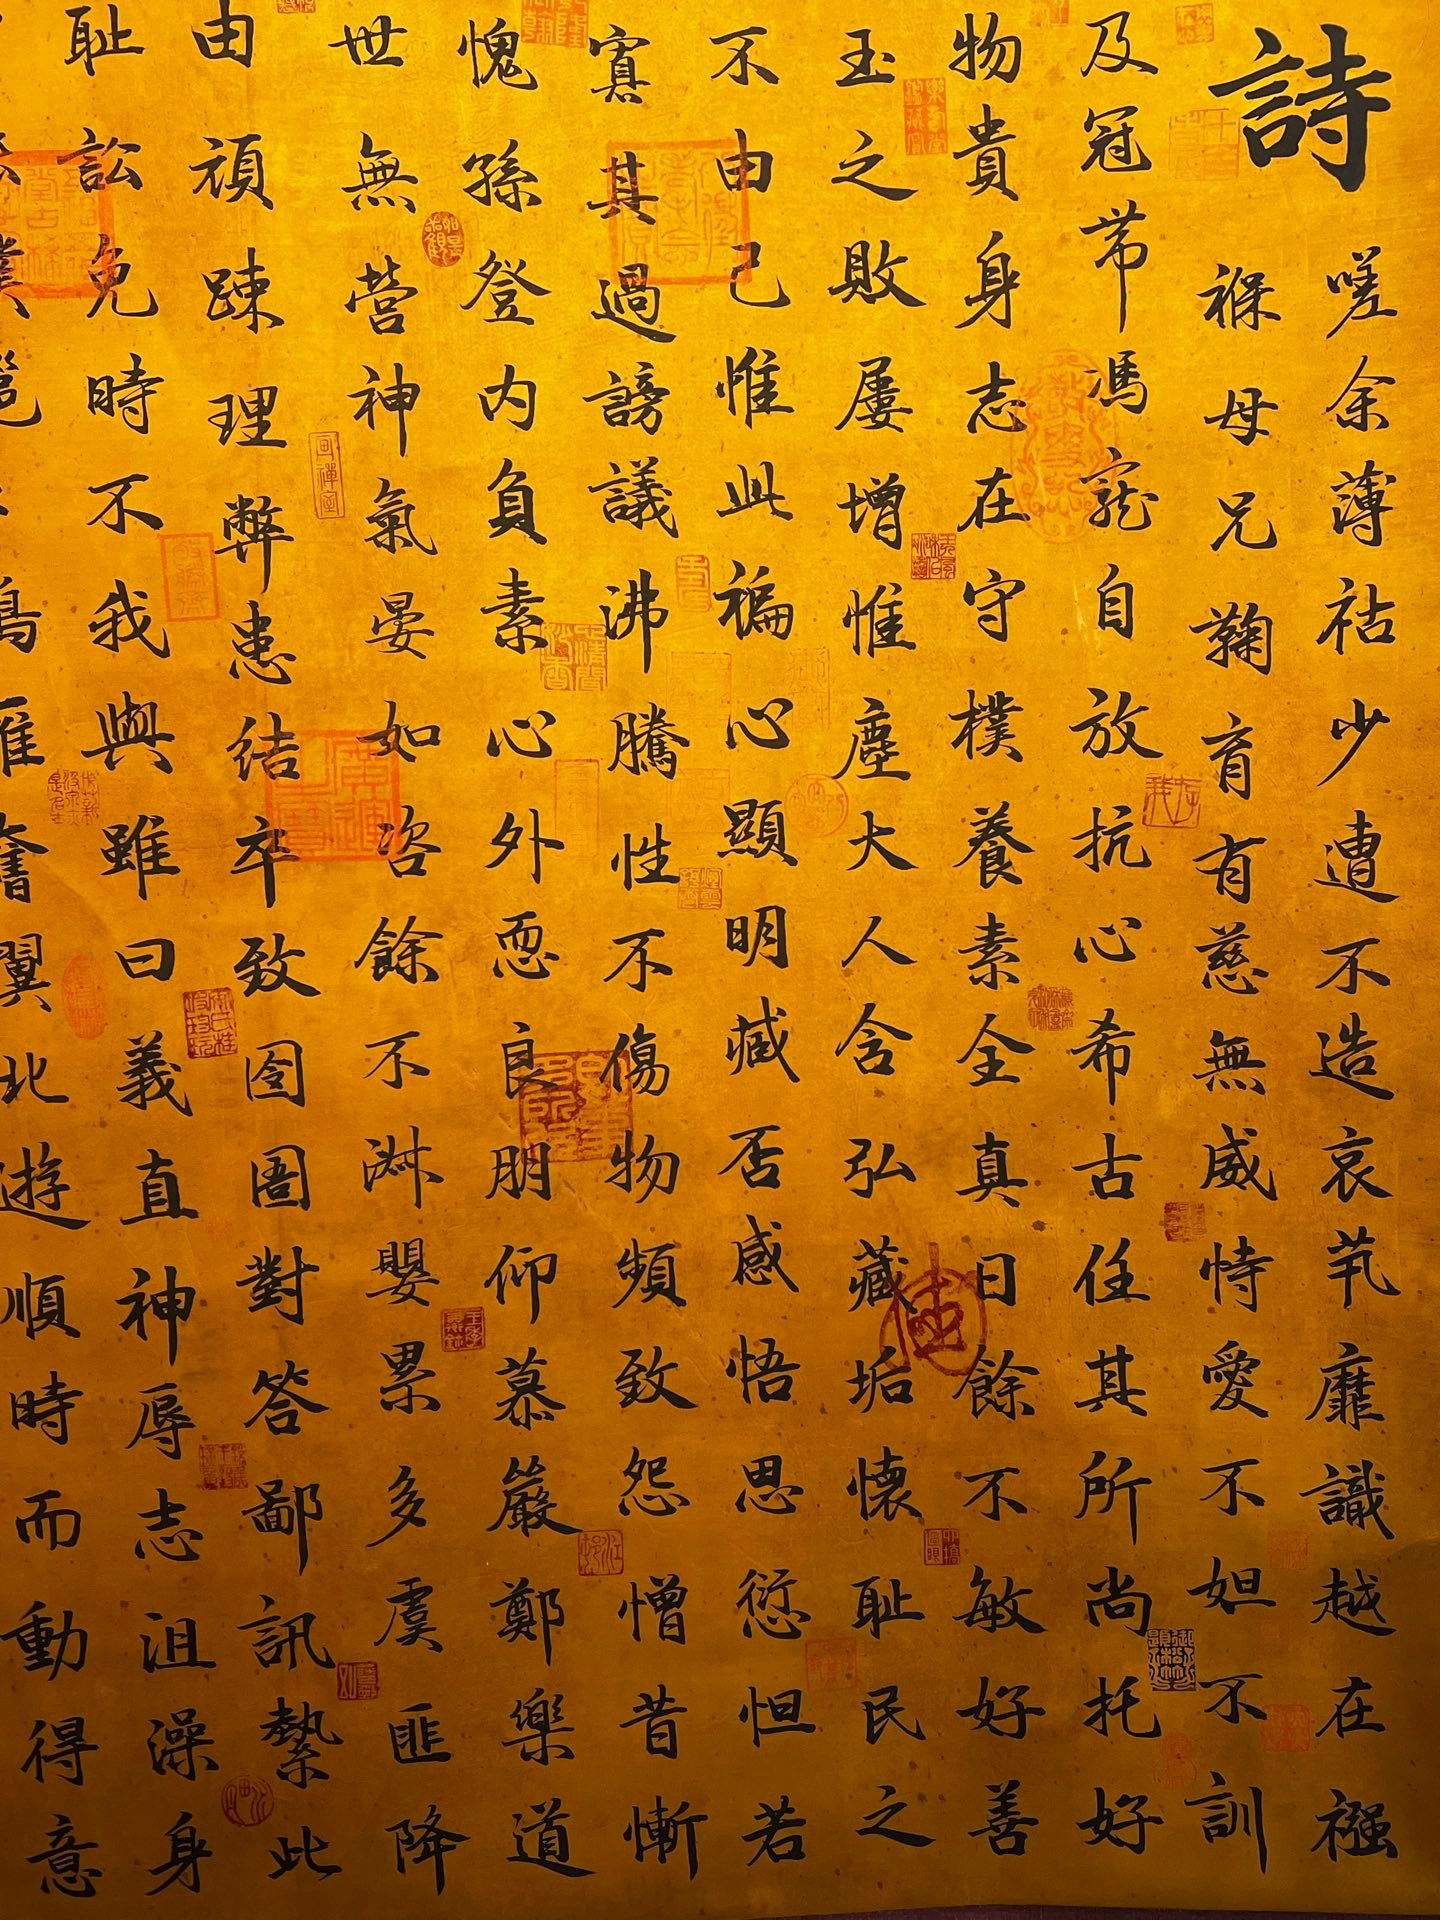 詩
嗟余薄祜少遭不造哀茕靡識越在襁
褓母兄鞠育有慈無威恃愛不妲不訓
及冠帯馮寵自放抗心希古任其所尚托好
物貴身志在守樸養素全真曰餘不敏好善
玉之敗屢增惟塵大人含弘藏垢懷耻民之
不由己惟此褊心顯明臧否感悟思愆怛若
寡其過謗議沸騰性不傷物頻致怨憎昔慚
愧孫登内負素心外恧良朋仰慕嚴鄭樂道
世無營神氣晏如咨餘不淋嬰累多虞匪降
由頑踈理弊患結卒致囹圄對答鄙訊縶此
耻訟免時不我與雖曰義直神辱志沮澡身
雁奮翼北遊順時而動得意